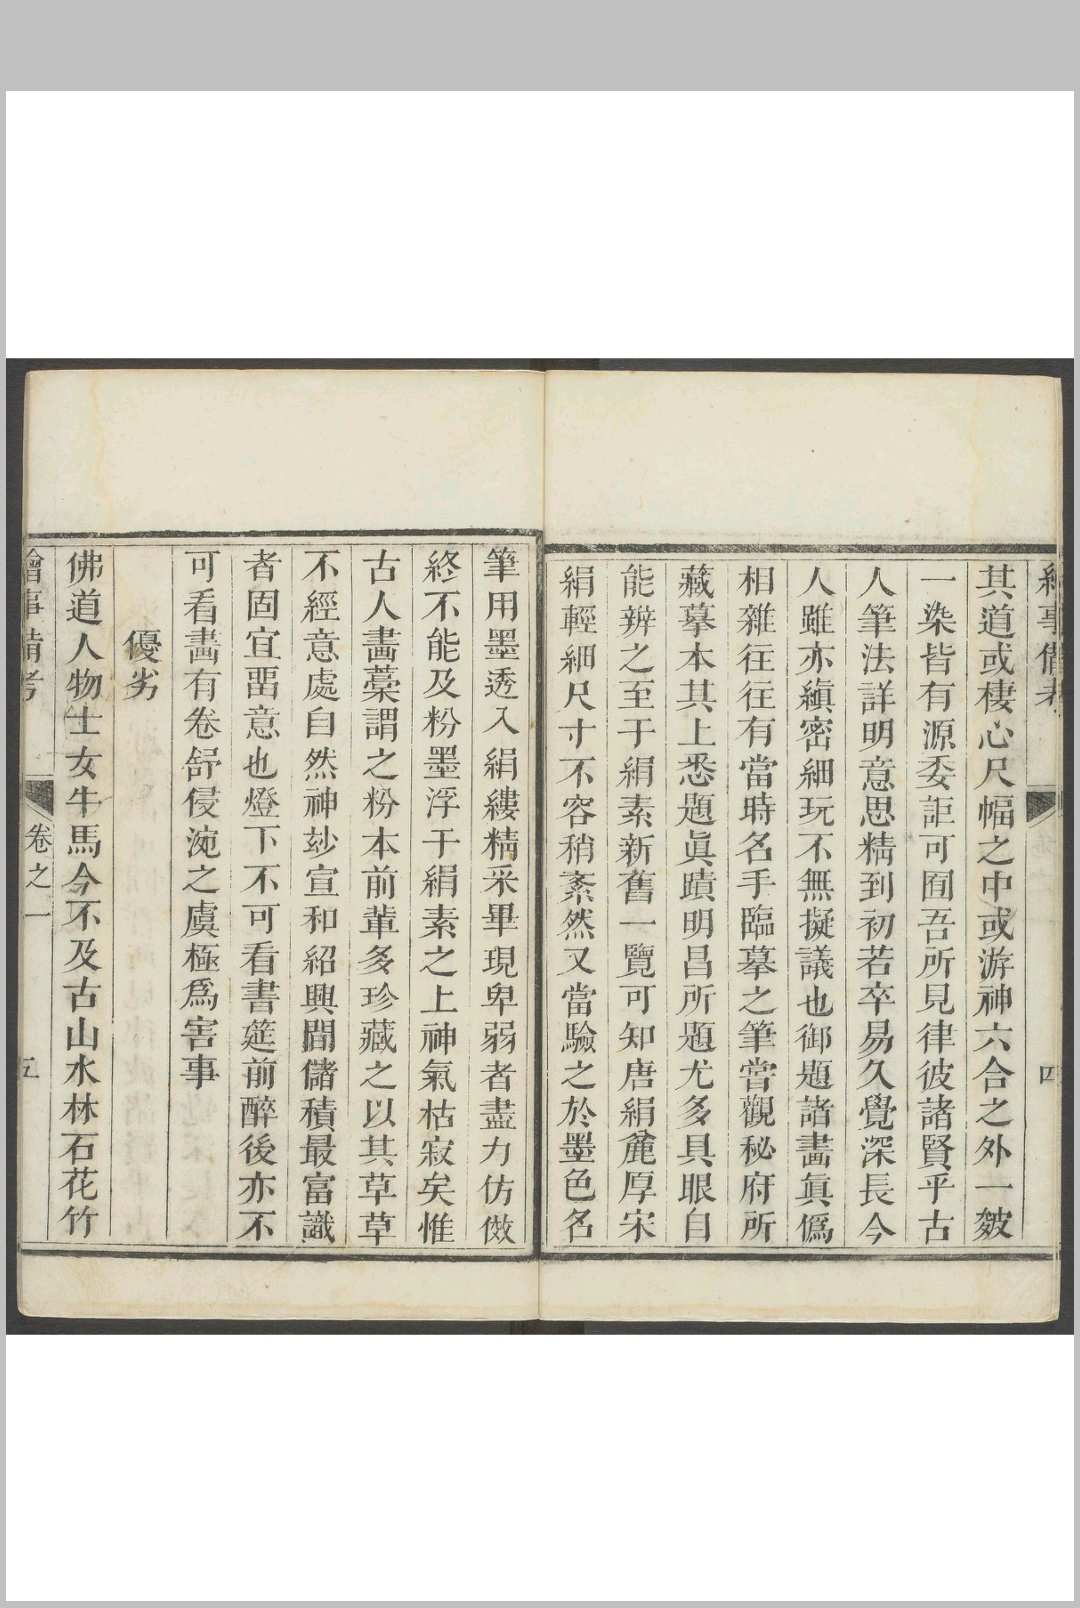 繪事備考
四
其道或棲心尺幅之中或游神六合之外一皴
一染皆有源委詎可囿吾所見律彼諸賢乎古
人筆法詳明意思精到初若卒易久覺深長今
人雖亦縝密細玩不無擬議也御題諸畵眞僞
相雜往往有當時名手臨摹之筆嘗觀秘府所
藏摹本其上悉題眞蹟明昌所題尤多具眼自
能辨之至于絹素新舊一覽可知唐絹麄厚宋
絹輕細尺寸不容稍紊然又當驗之於墨色名
筆用墨透入絹縷精采畢現卑弱者盡力仿傚
終不能及粉墨浮于絹素之上神氣枯寂矣惟
古人畵藁謂之粉本前輩多珍藏之以其草草
不經意處自然神玅宣和紹興間儲積最富識
者固宜畱意也燈下不可看書筵前醉後亦不
可看畵有卷舒侵涴之虞極爲害事
優劣
佛道人物士女牛馬今不及古山水林石花竹
繪事備考
卷之一
五